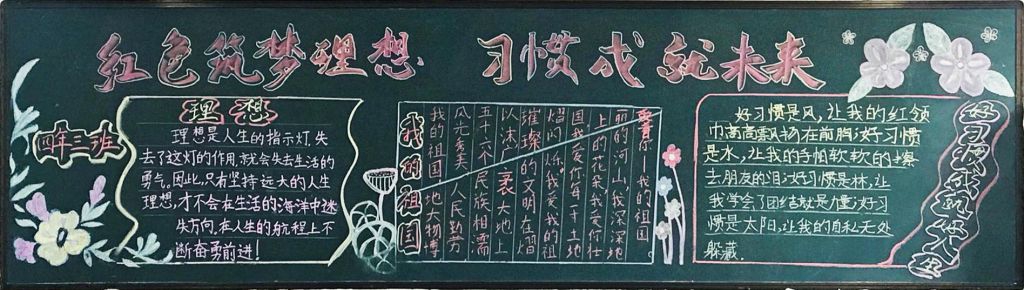 红色筑梦理想 习惯成就未来
四年三班
理想
理想是人生的指示灯,失
去了这灯的作用,就会失去生活的
勇气。因此,只有坚持远大的人生
理想,才不会在生活的海洋中迷
失方向,在人生的航程上不
断奋勇前进!
我的祖国
我的祖国
丽的河山,我深深地
国,我爱你每寸土地
上的花朵,我爱你壮
我爱我的祖
璀璨的文明在熠
以沫,广袤大地上
五十六个民族相濡
风光秀美,人民勤劳
我的祖国,地大物博
好习惯是风,让我的红领
巾高高飘扬在前胸;好习惯
是水,让我的手帕软软的擦
去朋友的泪;好习惯是林,让
我学会了团结就是力量;好习
惯是太阳,让我的自私无处
躲藏.
好习惯成就